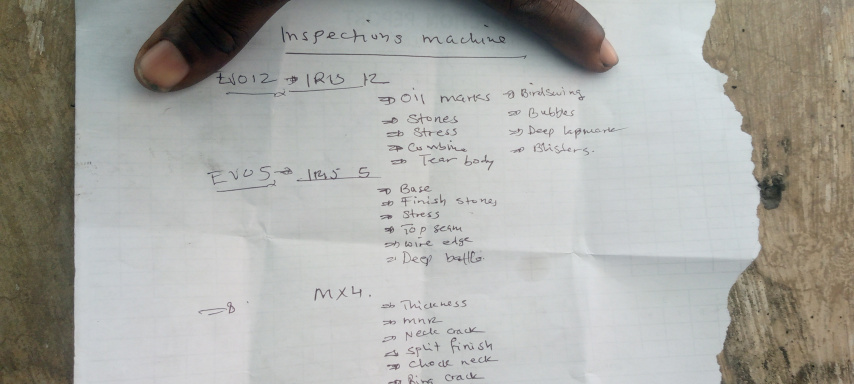 Inspections machine
EVO12 → IRIS 12
⇒ Oil marks ⇒ Birdswing
⇒ Bubbles
⇒ Stones
⇒ Stress ⇒ Deep lapmark
⇒ Combine ⇒ Blisters.
⇒ Tear body
EVO5 → IRIS 5
⇒ Base
⇒ Finish stones
⇒ Stress
⇒ Top seam
⇒ wire edge
⇒ Deep baffle
MX4.
⇒ 8
⇒ Thickness
⇒ MNR
⇒ Neck crack
⇒ Split finish
⇒ Chock neck
⇒ Ring crack